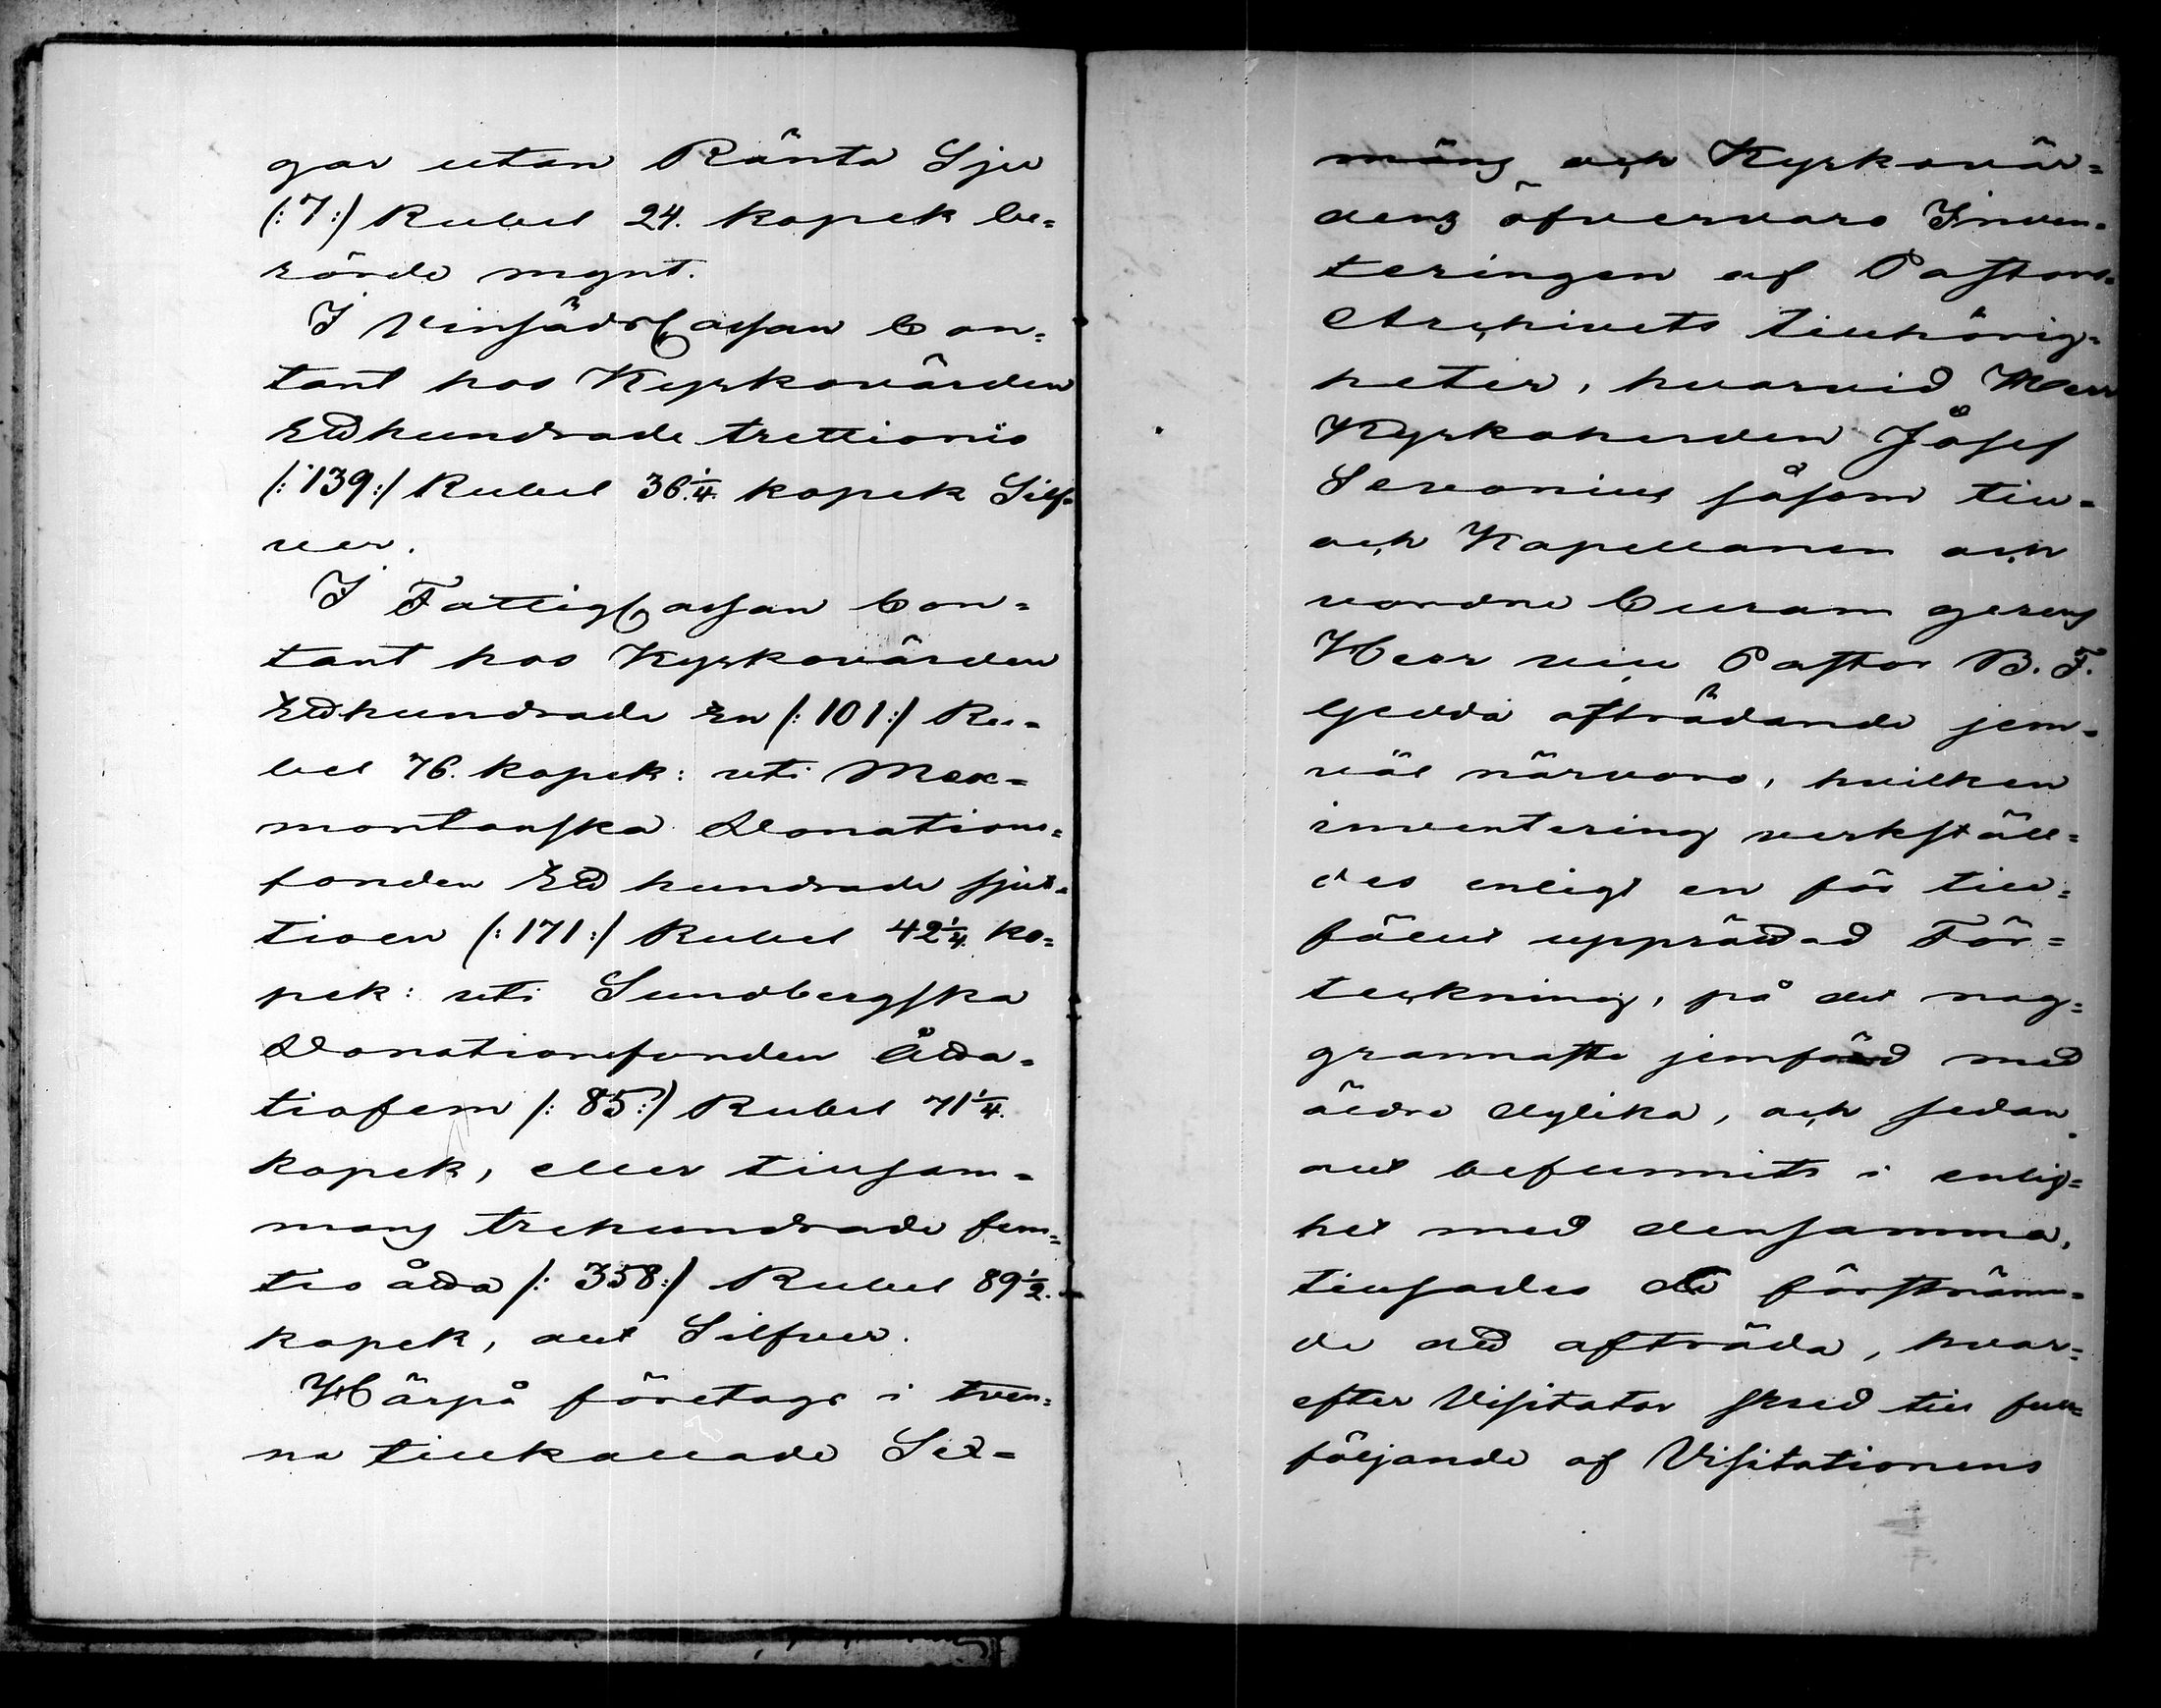 gar utan Ränta Sju
(: 7 :) Rubel 24. kopek be=
rörde mynt.
I VinsädsCassan Con=
tant hos Kyrkovärden
Etthundrade trettionio
(: 139 :) Rubel 36.¼. kopek Silf=
ver.
I FattigCassan Con=
tant hos Kyrkovärden
Etthundrade En (: 101 :) Ru=
bel 76. kopek: uti Mex=
montanska Donations=
fonden Ett hundrade sjut=
tioen (: 171 :) Rubel 42¼. ko=
pek: uti Sundbergska
Donationsfonden Åtta=
tiofem (: 85 :) Rubel 71¼.
kopek, eller tillsam=
mans trehundrade fem=
tio åtta (: 358 :) Rubel 89½.
kopek, allt Silfver.
Härpå företogs i tven=
ne tillkallade Sex=
mäns och Kyrkovär=
dens öfvervaro Inven=
teringen af Pastors=
Archivets tillhörig=
heter, hvarvid Herr
Kyrkoherden Josef
Servonius såsom till=
och Kapellanen och
vordne Curam gerens
Herr vice Pastor B. F.
Gedda afträdande jem=
väl närvoro, hvilken
inventering verkställ=
des enligt en för till=
fället upprättad För=
teckning, på det nog=
grannaste jemförd med
äldre dylika, och sedan
allt befunnits i enlig=
het med densamma,
tillsades de förstnämn=
de att afträda, hvar=
efter Visitator skred till full=
följande af Visitationens